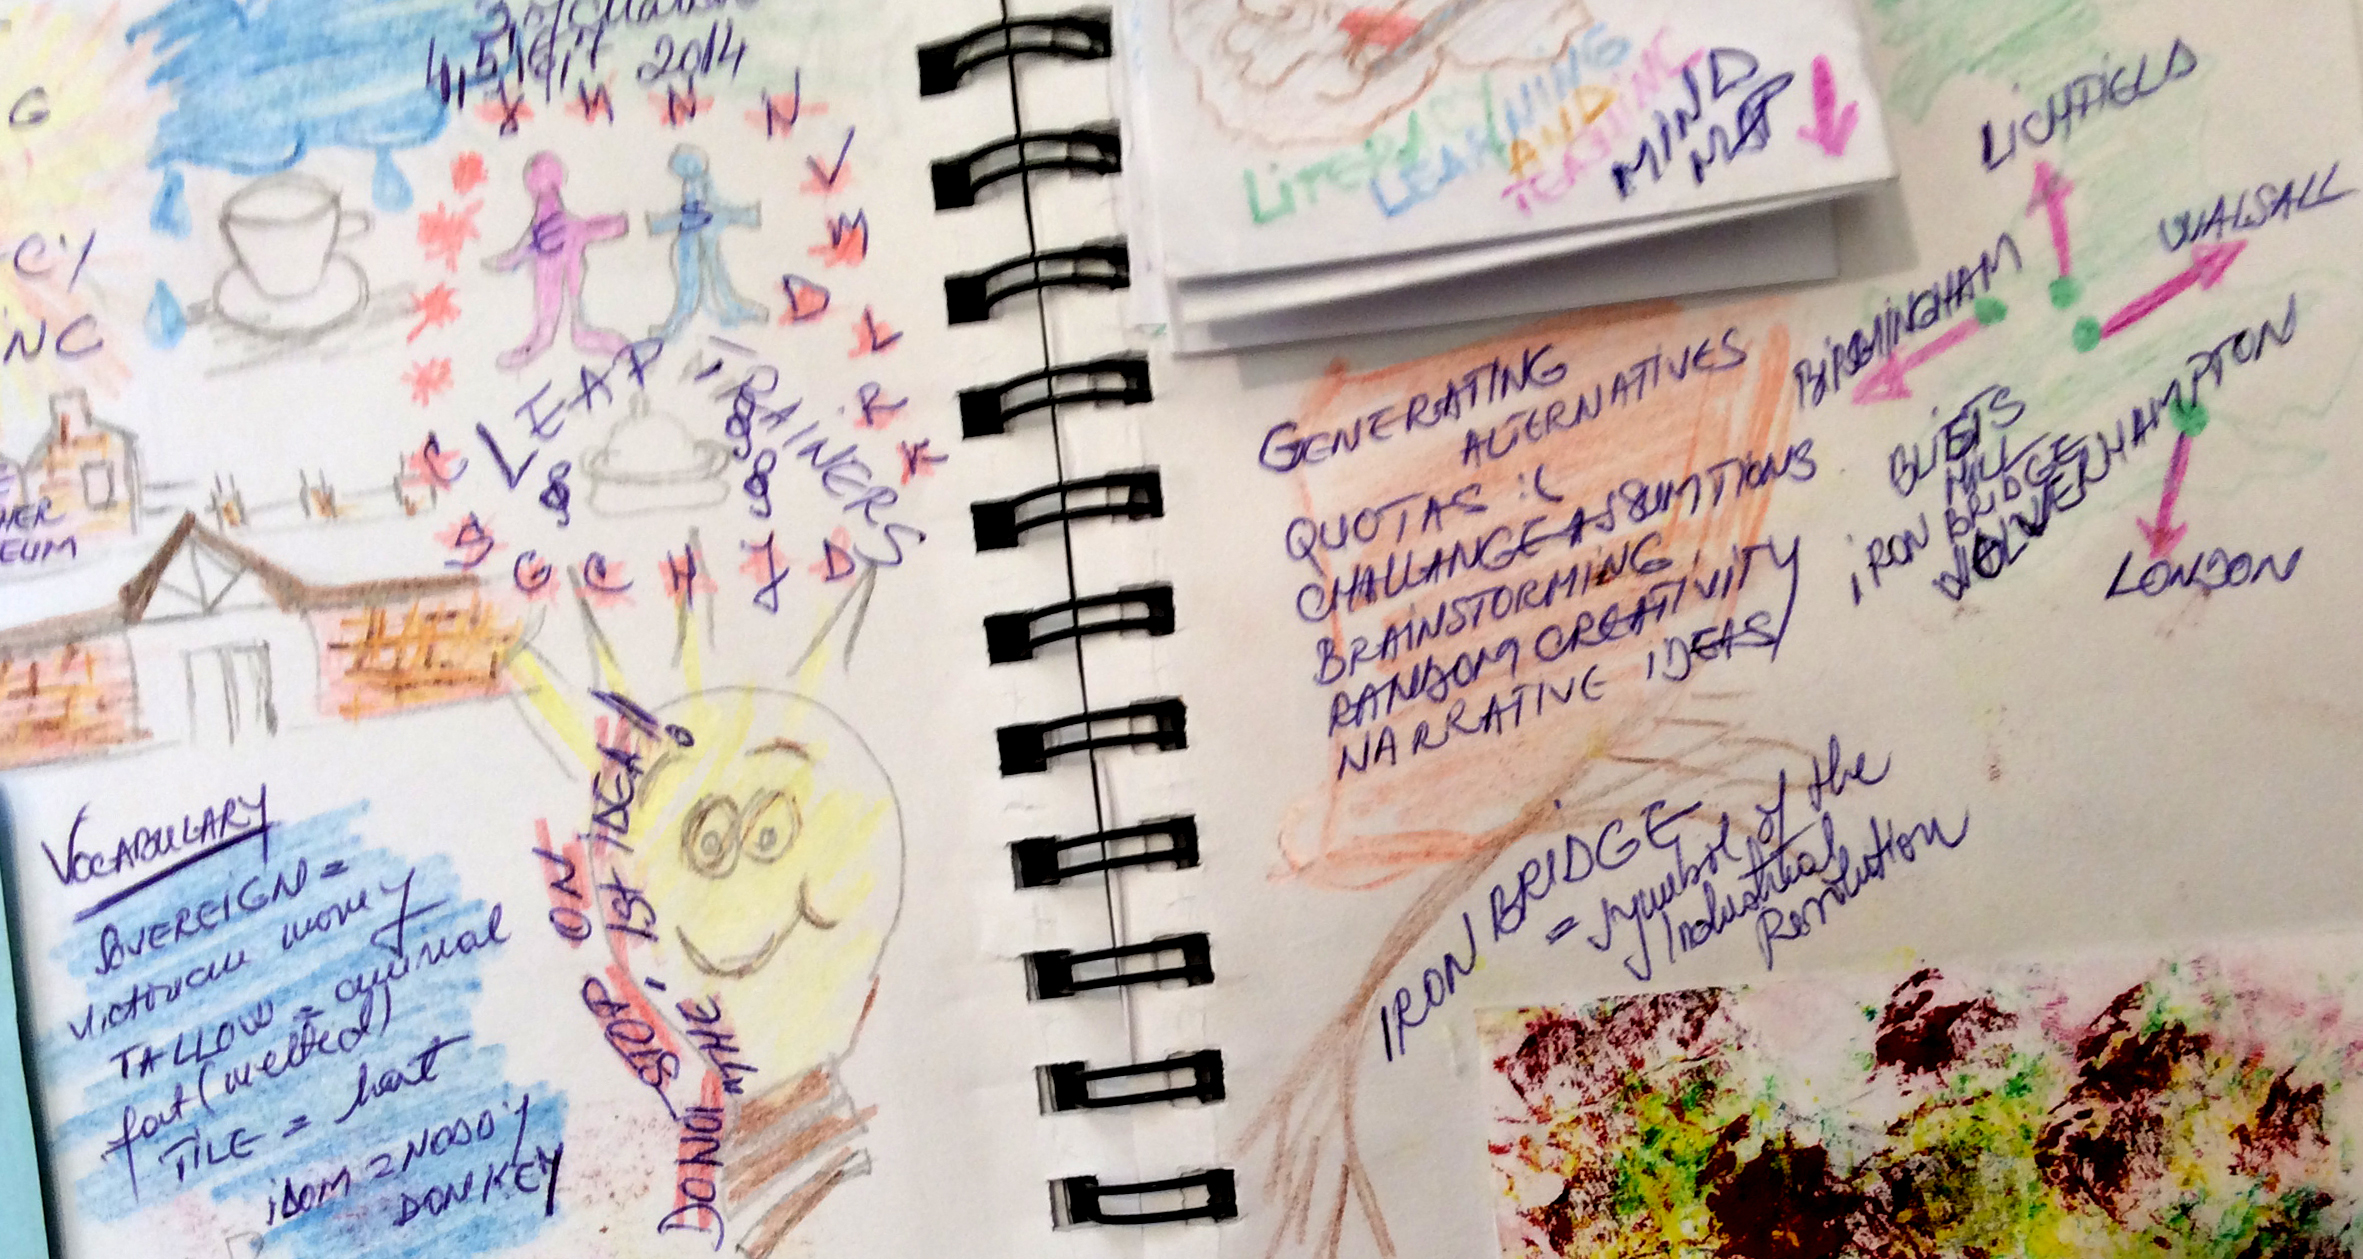 4, 5, 6, 7 2014
G
CY
NC
HER
EUM
N
N
V
M
D
L
R
K
E
S
LEAP
TRAINERS
C
S
G
C
H
J
D
VOCABULARY
SOVEREIGN =
victorian money
TALLOW = animal
fat (melted)
TILE = hat
iDOM = NODDY
DONKEY
DON'T
STOP ON
"THE 1ST iDEA!
LITERACY/
LEARNING
AND
TEACHING
MIND
LICHFIELD
WALSALL
BIRMINGHAM
BLISTS
HILL
iRON BRIDGE
WOLVERHAMPTON
LONDON
GENERATING
ALTERNATIVES
QUOTAS :(
CHALLANGE ASSUMTIONS
BRAINSTORMING
RANDOM CREATIVITY
NARRATIVE iDEAS/
IRON BRIDGE
= symbol of the
Industrial
Revolution